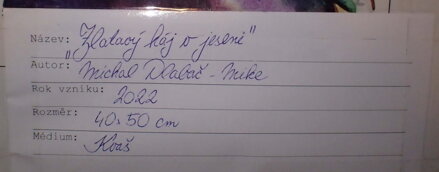 Název: "Zlatavý háj v jeseni"
Autor: Michal Dlabač - Mike
Rok vzniku: 2022
Rozměr: 40x50 cm
Médium: Kvaš